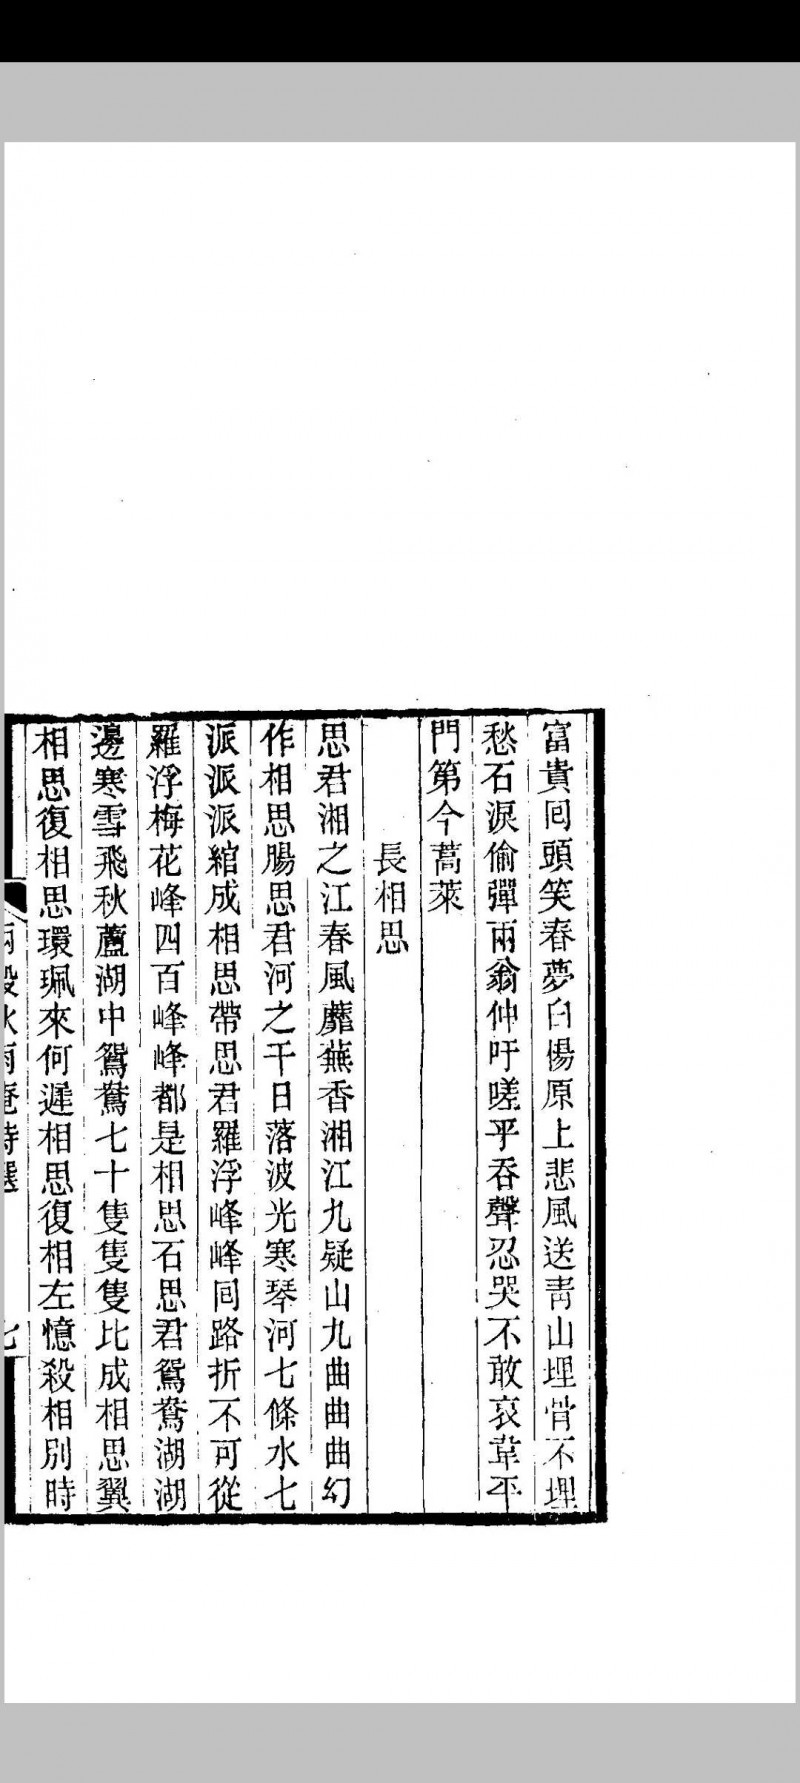 富貴囘頭笑春夢白傷原上悲風送靑山埋骨不埋
愁石淚偷彈兩翁仲吁嗟乎吞聲忍哭不敢哀韋平
門第今蒿萊
長相思
思君湘之江春風蘼蕪香湘江九疑山九曲曲曲幻
作相思腸思君河之干日落波光寒琴河七條水七
派派派綰成相思帶思君羅浮峰峰囘路折不可從
羅浮梅花峰四百峰峰都是相思石思君鴛鴦湖湖
邊寒雪飛秋蘆湖中鴛鴦七十隻隻隻比成相思翼
相思復相思環珮來何遲相思復相左憶殺相別時
兩般秋雨庵詩選
七